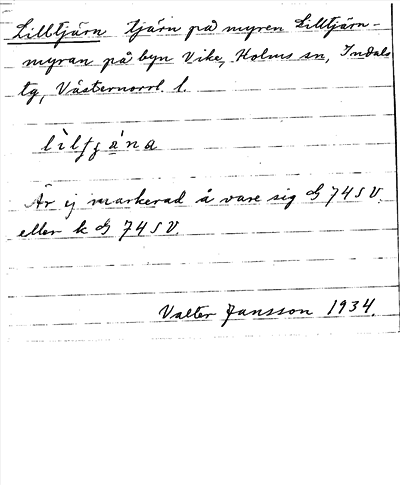 Lilltjärn tjärn på myren Lilltjärn-
myran på byn Vike, Holms sn, Indals
tg, Västernorrl. l.
Är ej markerad å vare sig G 74 S V.
eller k G 74 S V.
Valter Jansson 1934.